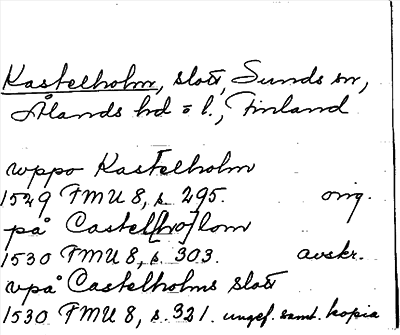 Kastelholm, slott, Sunds sn,
Ålands hd o l., Finland
wppo Kastelholm
1529 FMU 8, s. 295. orig.
på Castel[ho]lom
1530 FMU 8, s. 303. avskr.
vpå Castelholms slott
1530 FMU 8, s. 321. ungef. samt. kopia